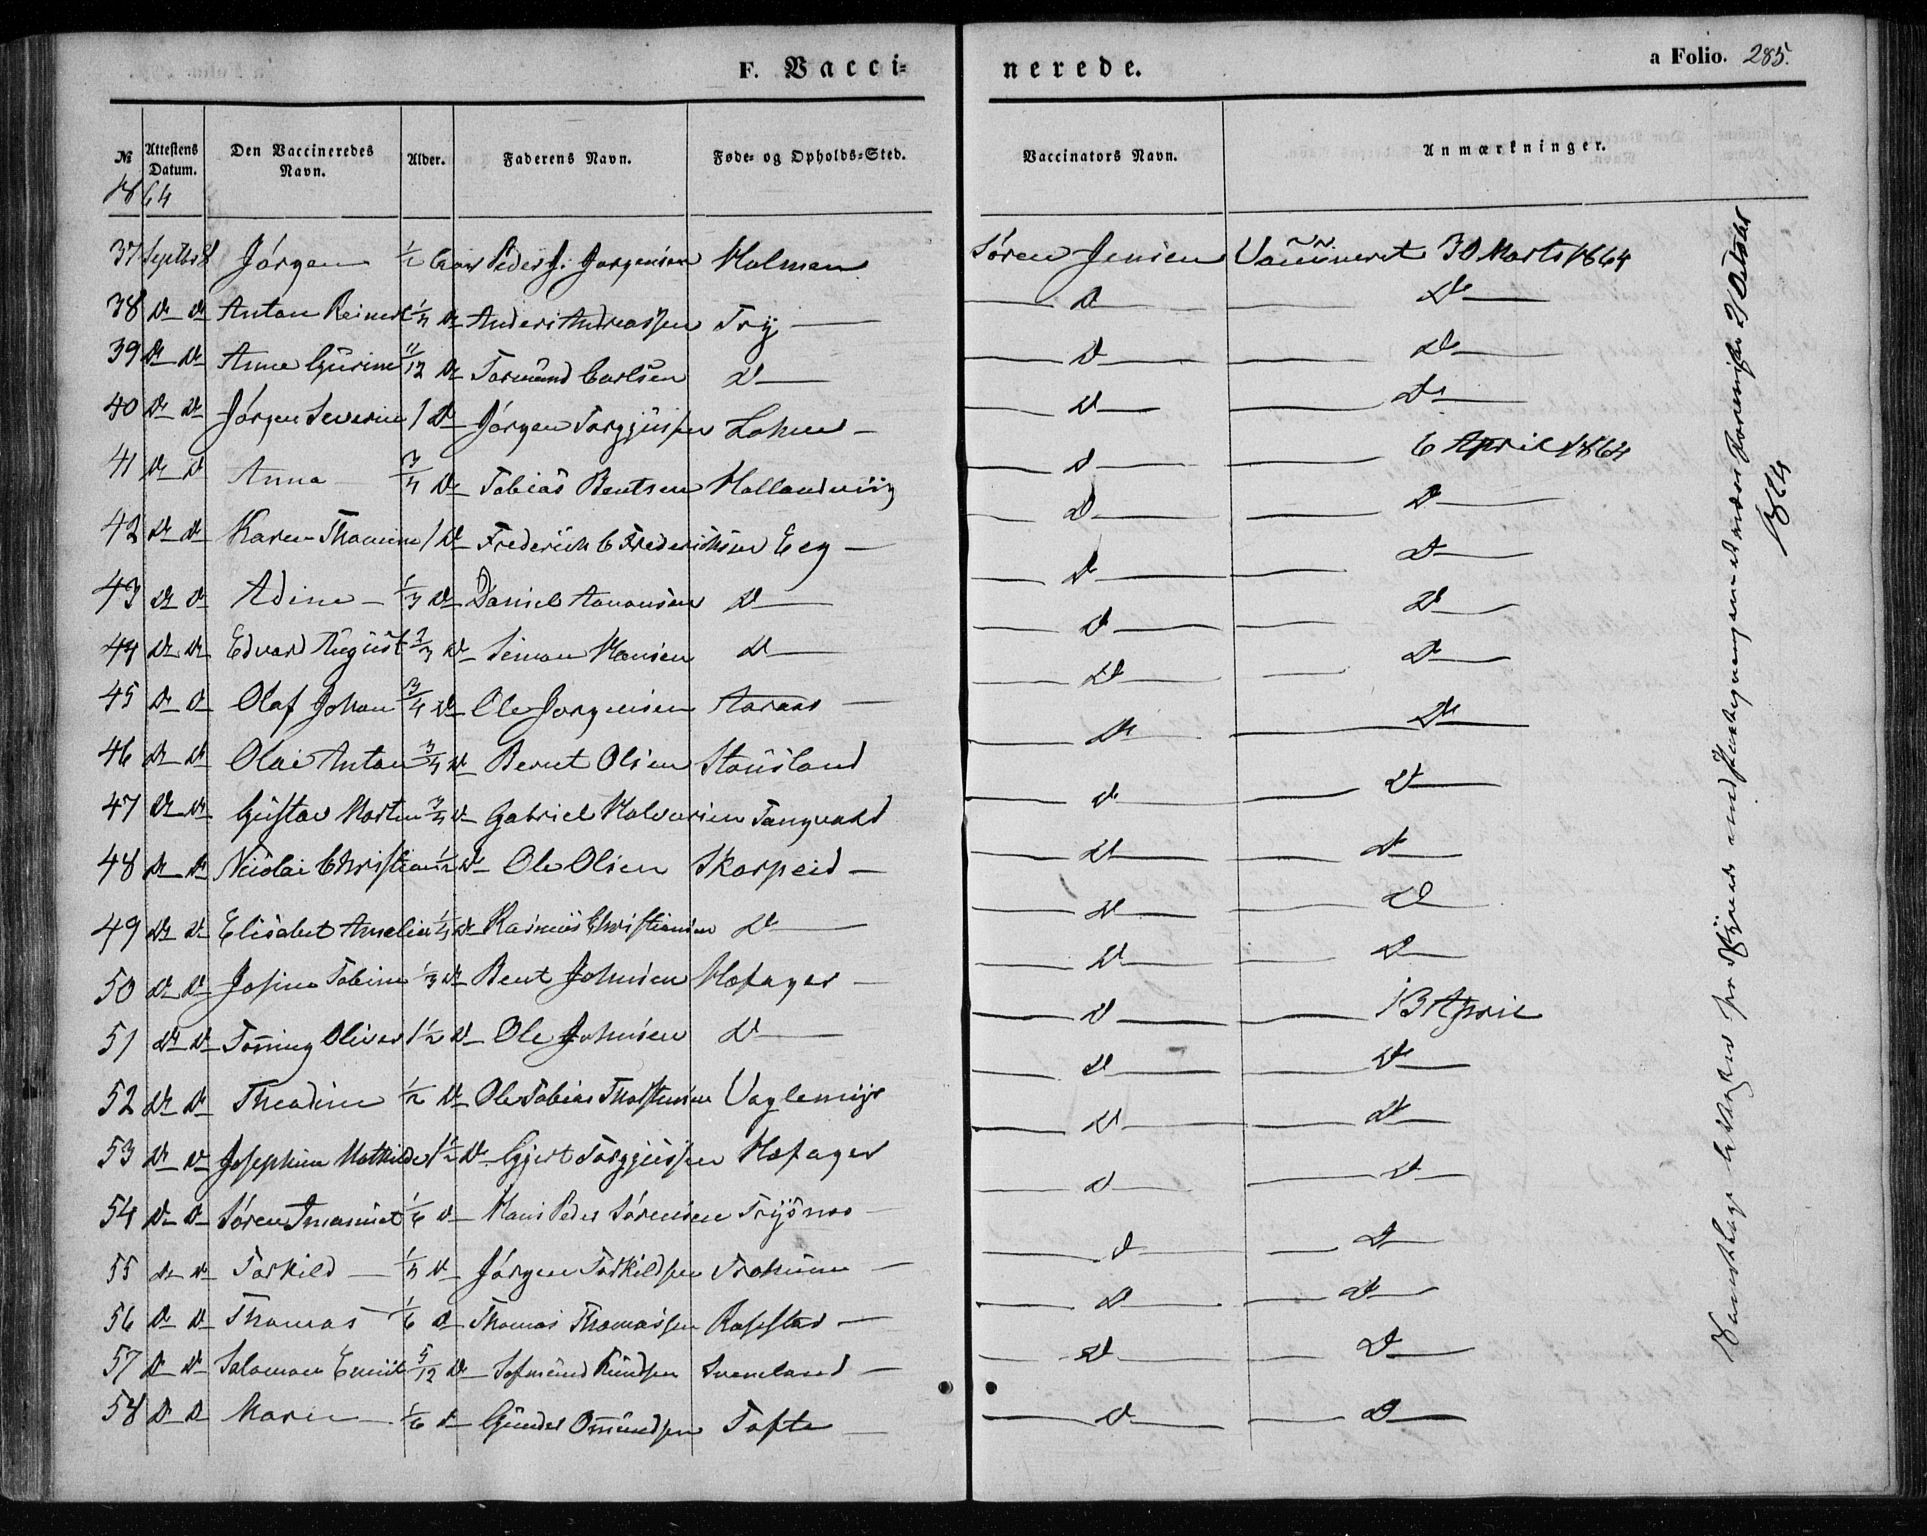 F. Vacci=
nerede.
a Folio. 285.
№ Attestens Datum. Den Vaccineredes Navn. Alder. Faderens Navn. Føde= og Opholds=Sted. Vaccinators Navn. Anmærkninger.
1864
37 Septbr 8 Jørgen 1/2 Peder J. Jørgensen Holmen Søren Jensen Vaccineret 30 Marts 1864
38 Dr Dr Anton Reinert 1/4 Dr Anders Andreassen Try — D — Dr —
39 Dr Dr Anne Gurine 11/12 Dr Tormund Carlsen Dr — D — Dr —
40 Dr Dr Jørgen Severin 1 Dr Jørgen Torgjussen Lohne — D — Dr —
41 Dr D Anna 3/4 Dr Tobias Bentsen Hallandvig — D — 6 April 1864
42 Dr Dr Karen Thomine 1 Dr Frederich C Frederichsen Eeg — D — D —
43 Dr D Adine — 1/3 Dr Daniel Aanonsen D — D — D —
44 Dr Dr Edvard August 2/3 Dr Simon Hansen D — D — D —
45 Dr D Olaf Johan 3/4 Dr Ole Jørgensen Aaraas — D — D —
46 Dr Dr Olai Anton 3/4 Dr Bernt Olsen Stausland — Dr — Dr —
47 Dr Dr Gustav Martin 3/4 Dr Gabriel Halvorsen Tangvald — D — D —
48 Dr Dr Nicolai Christian 1/2 Dr Ole Olsen Skarpeid — D — D —
49 Dr Dr Elisabet Amalia 1/3 Dr Rasmus Christiansen D — D — D —
50 Dr Dr Josine Tobine 1/3 Dr Bent Johnsen Hæfager — D — D —
51 Dr Dr Tønning Oliver 1 1/2 Dr Ole Johnsen D — D — 13 April
52 Dr Dr Theodine 1/2 Dr Ole Tobias Thorstensen Vaglemyr — D — D —
53 Dr D Josephine Mathilde 1 1/2 Dr Gjert Torgjussen Hæfager — D — D —
54 Dr D Søren Imanuel 1/6 D Hans Peder Sørensen Trysnes — D — D —
55 Dr Dr Torkild — 1/4 D Jørgen Torkildsen Trohume — D — D —
56 D D Thomas 1/6 D Thomas Thomassen Rosstad — D — D —
57 D D Salomon Emil 5/12 D Sofmund Knudsen Sveneland — D — D —
58 D D Maren 1/6 D Gunder Omundsen Tofte — D — D —
1864